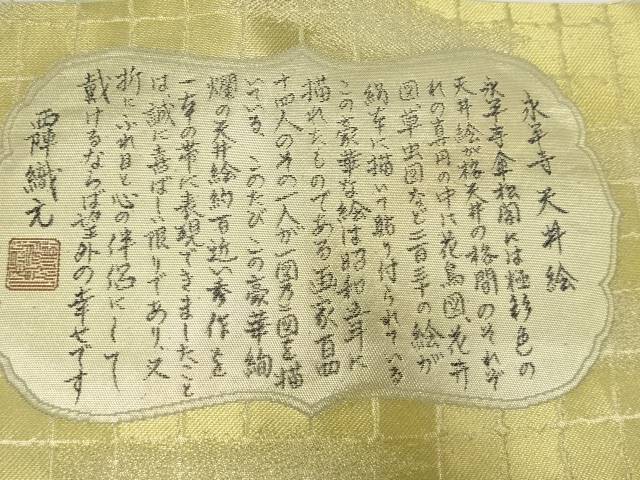 永平寺天井絵
永平寺傘松閣には極彩色の
天井絵が格天井の格間のそれぞ
れの真円の中に花鳥図、花卉
図、草虫図など二百三十の絵が
絹本に描いて貼り付られている
この豪華な絵は昭和五年に
描れたものである画家百四
十四人のその一人が一図乃二図を描
いている、このたびこの豪華絢
爛の天井絵約百近い秀作を
一本の帯に表現できましたこと
は、誠に喜ばしい限りであり、又
折にふれ目と心の伴侶にして
戴けるならば望外の幸せです
西陣織元